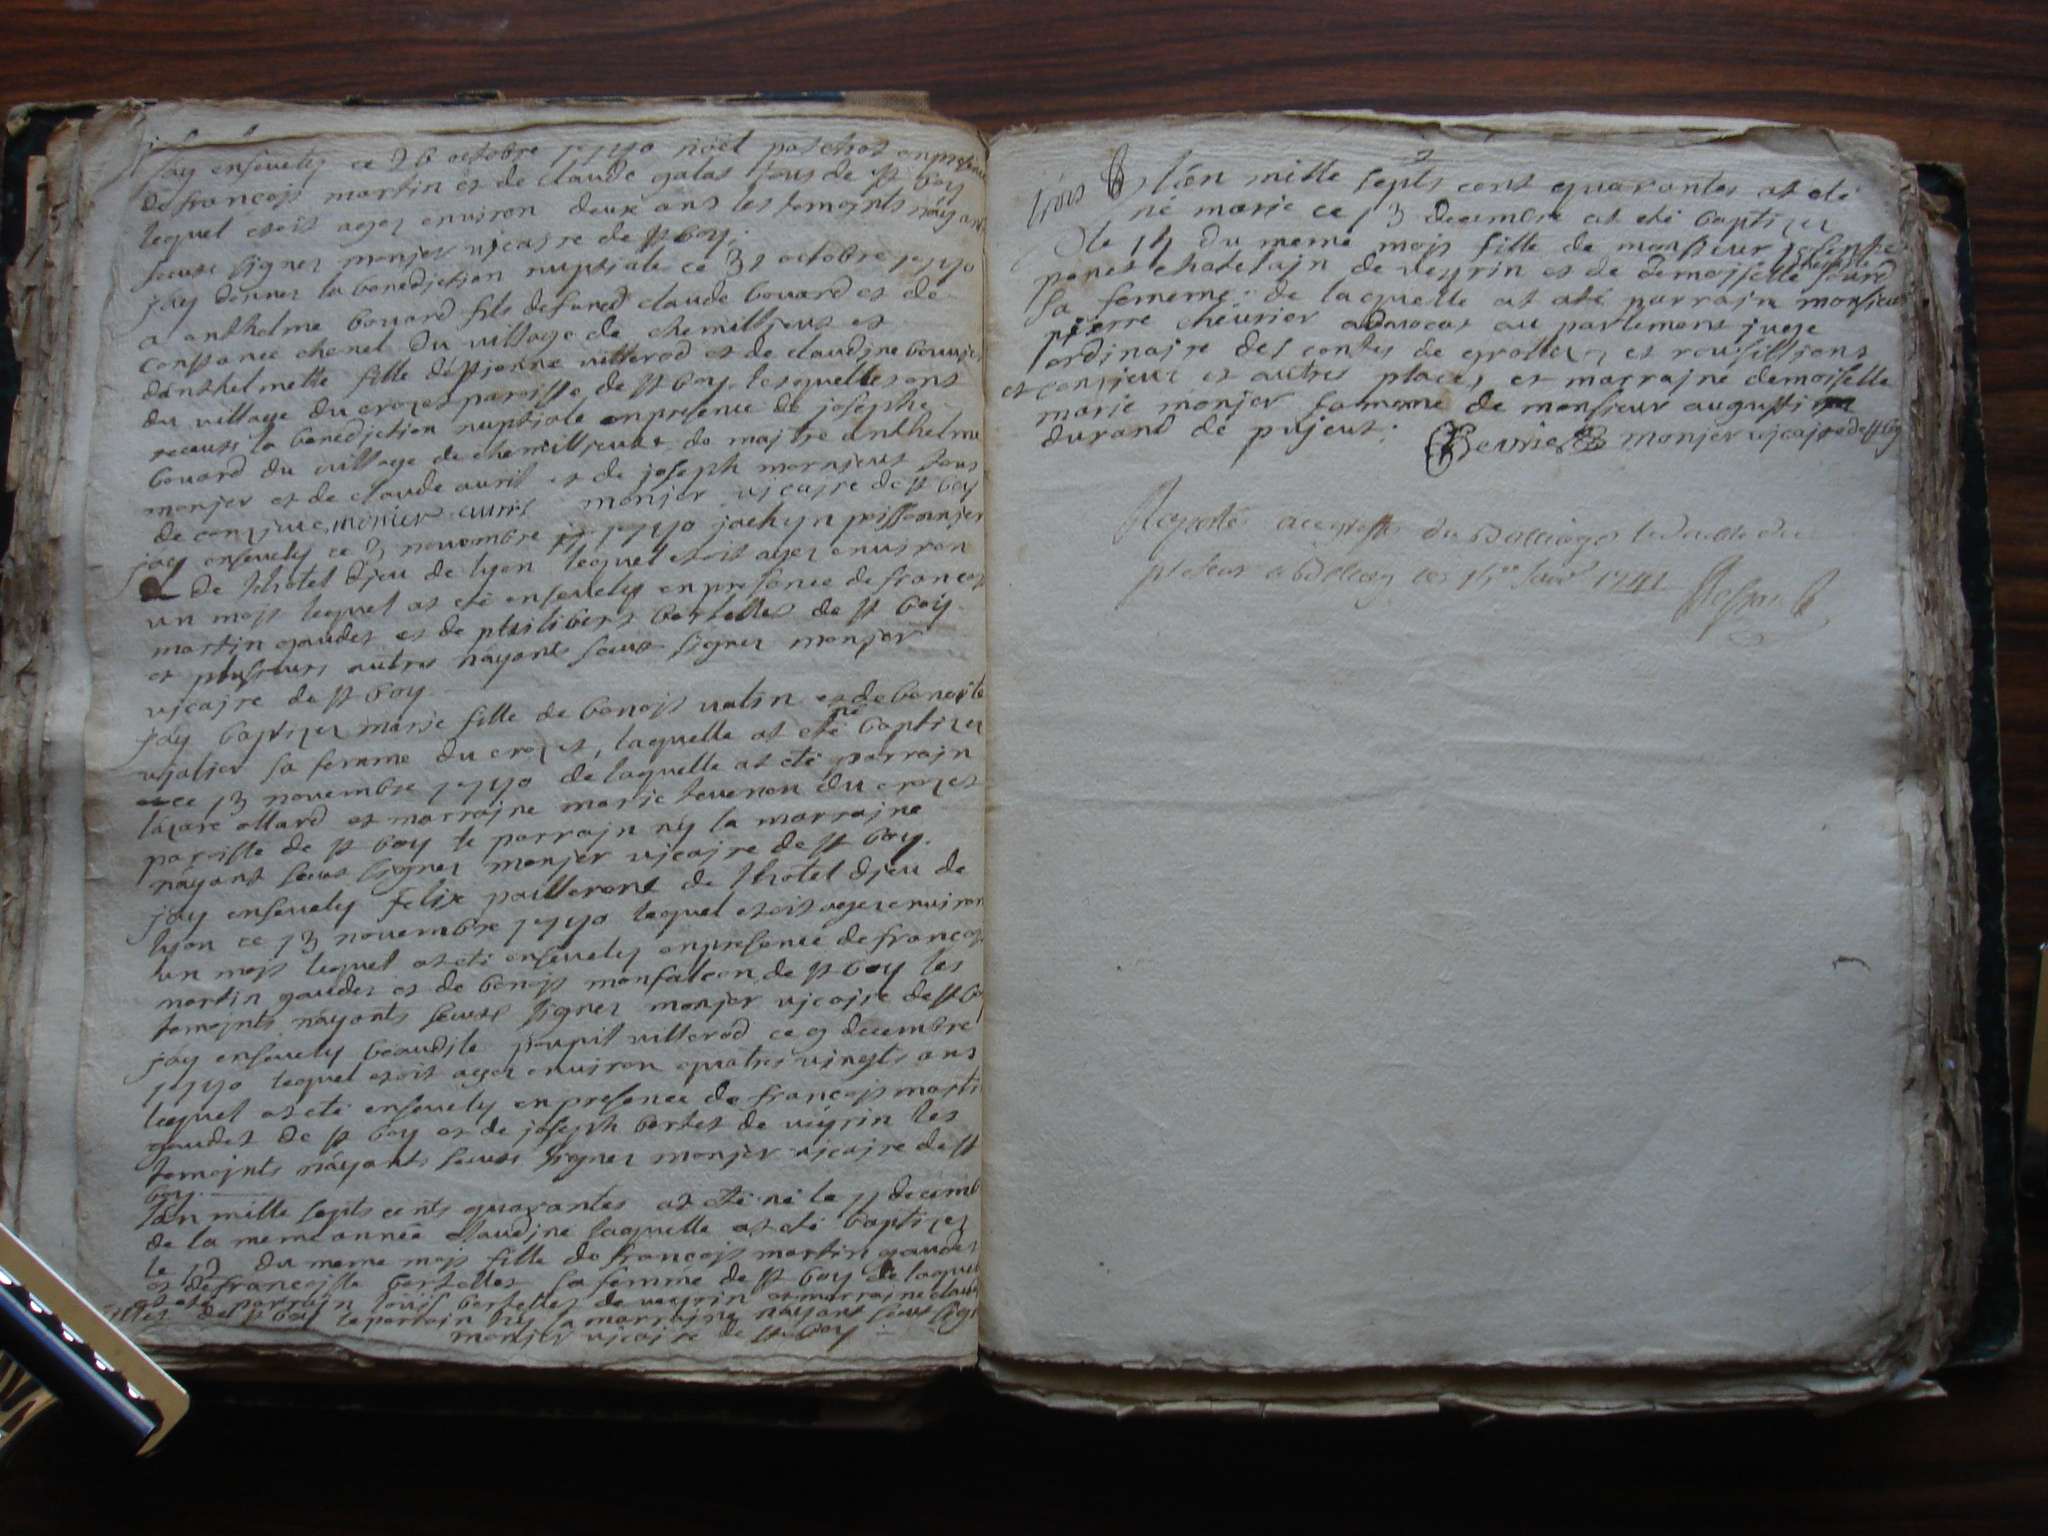 jay ensevely ce 26 octobre 1740 noël pochot en presence
de françois martin et de claude galas tous de st boy
lequel etoit agez environ deux ans les temoints nayant
sceus signez monjer vjcajre de st boy.
jay donnez la benedjction nuptiale ce 31 octobre 1740
a anthelme bouard fils defunct claude bouard et de
constance chenel du village de chemilljeus et
danthelmette fille detjenne villerod et de claudjne bouvjer
du village du crozet paroisse de st boy lesquelles ont
receus la benedjction nuptiale en presence de josephe
bouard du village de chemilljeus de majtre anthelme
monjer et de claude avril et de joseph mornjeus tous
de conzjeus monier avril monjer vjcajre de st boy
jay ensevely ce 3 novembre 1740 jochjn poissonnjer
de lhotel djeu de lyon lequel etoit agez environ
un mojs lequel at eté ensevely en presence de françois
martin gaudet et de philibert bertelles de st boy
et plusieurs autres nayants sceus signez monjer
vjcajre de st boy
jay baptizez marie fille de benojs vatin et de benojte
vjaljer sa femme du crozet, laquelle at eté né baptizez
ce 13 novembre 1740 de laquelle at eté parrajn
lazare allard et marrajne marie tevenon du crozet
paroisse de st boy le parrajn ny la marrajne
nayant sceus signez monjer vjcajre de st boy.
jay ensevely felix pailleront de lhotel djeu de
lyon ce 13 novembre 1740 lequel etoit agez environ
un mojs lequel at eté ensevely en presence de françois
martin gaudet et de benojs monfalcon de st boy les
temojnts nayants sceus signez monjer vjcajre de st boy
jay ensevely beaudile villerod ce 9 decembre
1740 lequel etoit agez environ quatres vingts ans
lequel at eté ensevely en presence de françojs martin
gaudet de st boy et de joseph bertet de veyrin les
temojnts nayants sceus signez monjer vjcajre de st
boy
lan mille septs cents quarantes at eté né le 11 decemb
de la meme année claudjne laquelle at eté baptizez
le 12 du meme mojs fille de françojs martin gaudet
et de françoisse bertelles sa femme de st boy de laquel
at eté parrajn louis bertelles de veyrin et marrajne claud
de st boy le parrajn ny la marrajne nayant sceus sign
monjer vjcajre de st boy
trois
lán mille septs cent quarantes at eté
né marie ce 13 decembre at eté baptizez
le 14 du meme mojs fille de monsieur josephe
ponet chatelajn de veyrin et de demojselle
sa fememe de laquelle at eté parrajn monsieur
pierre cheurier advocat au parlement juge
ordinajre des contés de grollez et rousilljons
et conzjeuz et autres places et marrajne demoiselle
marie monjer femme de monsieur augustin
durand de pujeut. Chevrier monjer vjcajre de st boy
1741